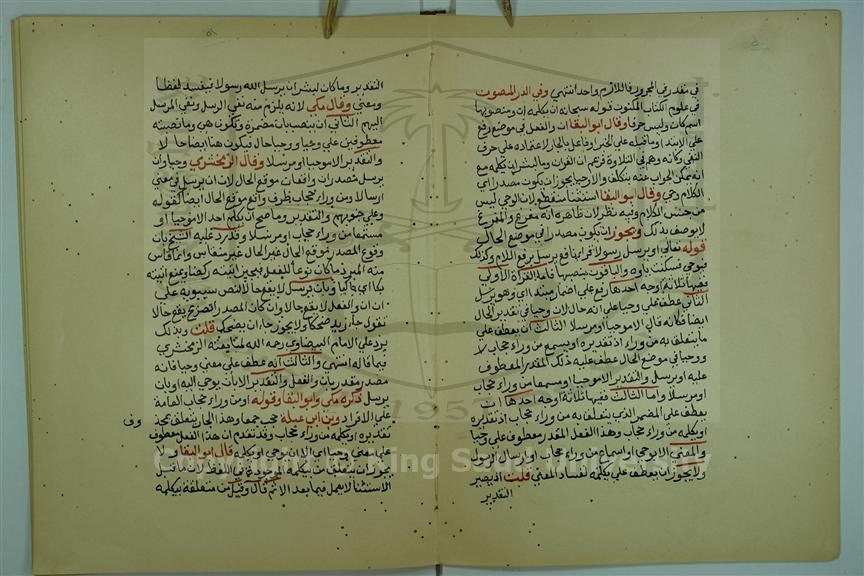 في مقدر في المجرور في اللازم واحد انتهي وفي الدر المصون
في علوم الكتاب المكنون قوله سبحانه ان يكلمه ان ومنصوبها
اسم كان وليس خبرا وقال ابو البقا ان والفعل في موضع رفع
على الابتدا وما قبله على الخبر او فاعل بالجار لاعتماده على حرف
النفي وكانه وهم في التلاوة فزعم ان القران وما لبشر ان يكلمه مع
انه يمكن الجواب عنه بتكلف والا وحيا يجوز ان يكون مصدرا اي
الكلام وحي وقال ابو البقا استثنا منقطع لان الوحي ليس
من جنس الكلام وفيه نظر لان ظاهره انه مفرغ والمفرغ
لا يوصف بذلك ويجوز ان يكون مصدرا في موضع الحال
قوله تعالى او يرسل رسولا قرا نافع يرسل برفع اللام وكذلك
فيوحي فسكنت ياوه والباقون بنصبها فاما القراة الاولى
ففيها ثلاثة اوجه احدها رفع على اضمار مبتدا اي وهو يرسل
الثاني عطف على وحيا على انه حال لان وحيا في تقدير الحال
ايضا فكانه قال الا موحيا او مرسلا الثالث ان يعطف على
ما يتعلق به من وراء اذ تقديره او يسمع من وراء حجاب
ووحيا في موضع الحال عطف عليه ذلك المقدر المعطوف
عليه او يرسل والتقدير الا موحيا او مسمعا من وراء حجاب
او مرسلا واما الثالث ففيها ثلاثة اوجه احدها ان
يعطف على المضمر الذي يتعلق به من وراء حجاب اذ تقديره
او يكلمه من وراء حجاب وهذا الفعل المقدر معطوف على وحيا
والمعنى الا بوحي او اسماع من وراء حجاب او ارسال رسول
ولا يجوز ان يعطف على يكلمه لفساد المعنى قلت اذ يصير
التقدير
التقدير وما كان لبشر ان يرسل الله رسولا فيفسد لفظا
ومعنى وقال مكي لانه يلزم منه نفي الرسل ونفي المرسل
اليهم الثاني ان ينصب بان مضمرة وتكون هي وما نصبته
معطوفين على وحيا ووحيا حال فيكون هنا ايضا حالا
والتقدير الا موحيا او مرسلا وقال الزمخشري وحيا وان
يرسل مصدران واقعان موقع الحال لان ان يرسل في معنى
ارسالا ومن وراء حجاب ظرف واقع موقع الحال ايضا كقوله
وعلى جنوبهم والتقدير وما صح ان يكلم احدا الا موحيا او
مسمعا من وراء حجاب او مرسلا وقد رد عليه الشيخ بان
وقوع المصدر موقع الحال غير منقاس وانما قاس
منه المبرد ما كان نوعا للفعل فيجيز اتيته ركضا ويمنع اتيته
بكا اي باكيا وبان يرسل لا يقع حالا لنص سيبويه على
ان ان والفعل لا يقع حالا وان كان المصدر الصريح يقع حالا
تقول جاء زيد ضحكا ولا يجوز جاء ان يضحك قلت وبذلك
يرد على الامام البيضاوي رحمه الله لمتابعته الزمخشري
فيما قاله انتهي والثالث انه عطف على معنى وحيا فانه
مصدر مقدر بان والفعل والتقدير الا بان يوحي اليه او بان
يرسل ذكره مكي وابو البقا وقوله او من وراء حجاب العامة
على الافراد وبن ابي عبلة حجب جمعا وهذا الجار يتعلق بمحذوف
تقديره او يكلمه من وراء حجاب وقد تقدم ان هذا الفعل معطوف
على معنى وحيا اي الا ان يوحي او يكلمه قال ابو البقا ولا
يجوز ان يتعلق من بيكلمه الموجودة في اللفظ لان ما قبل
الاستثنا لا يعمل فيما بعد الا ثم قال وقيل من متعلقة بيكلمه